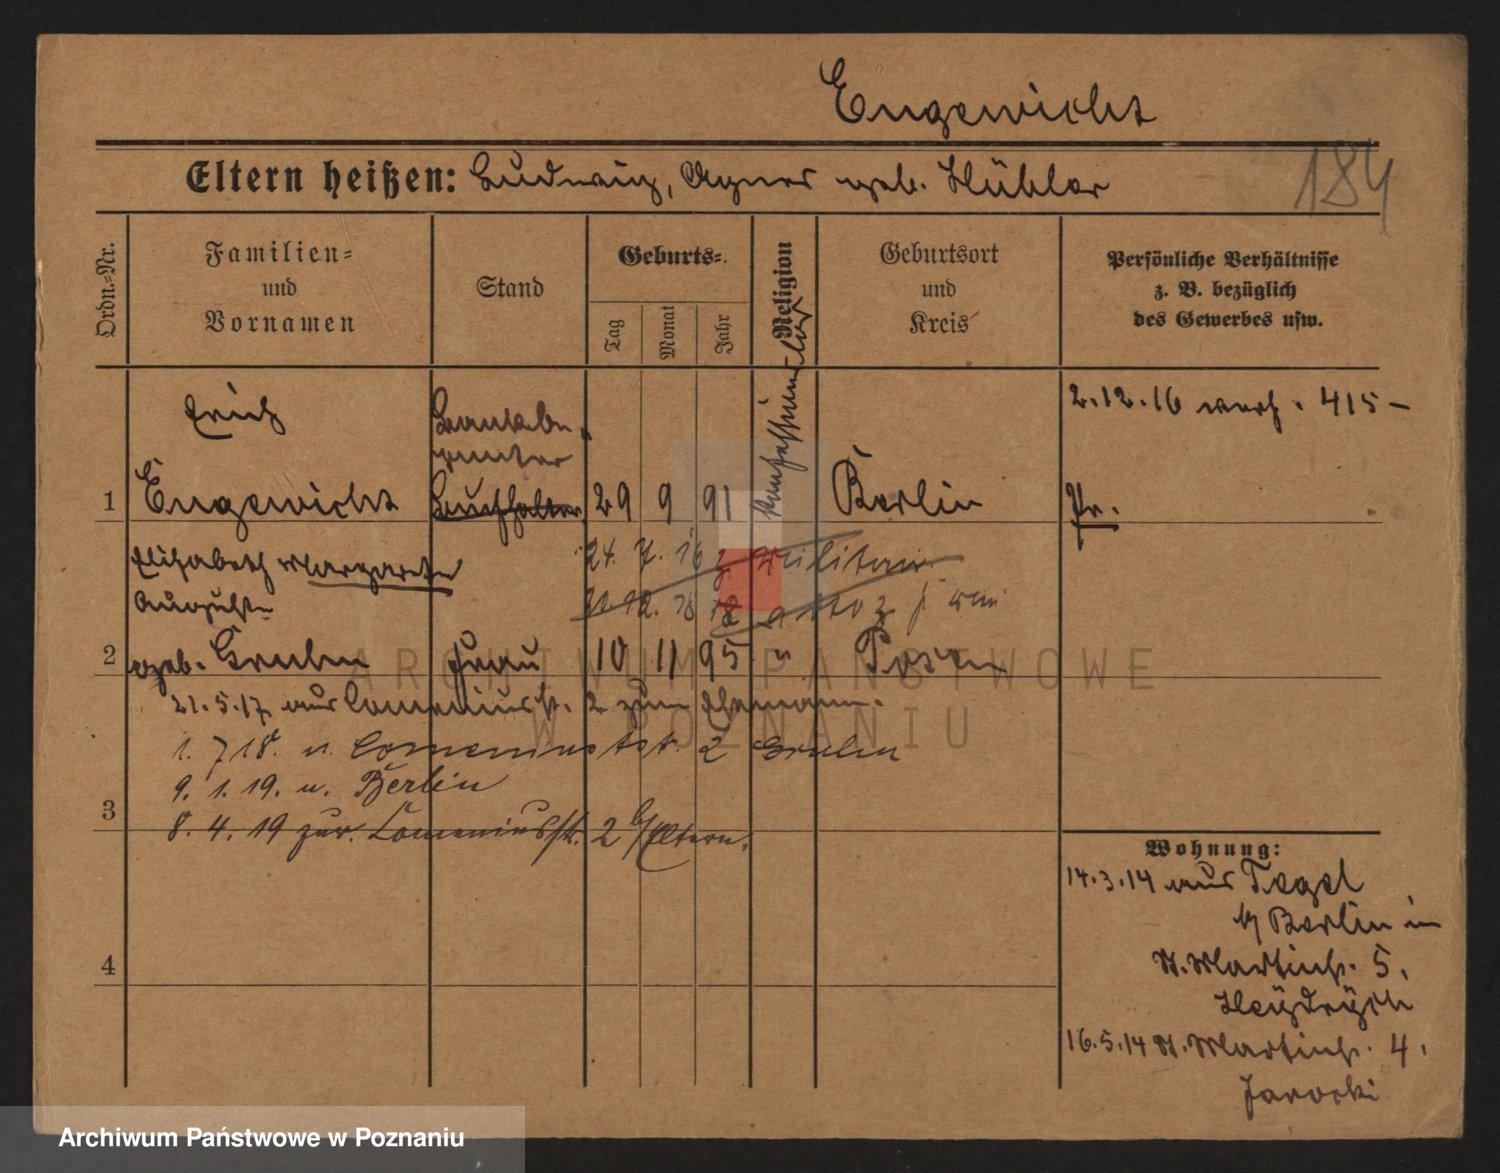 Engewicht
184
Eltern heißen: Ludwig, Agnes geb. Hübler
Ordn.=Nr.
Familien=
und
Vornamen
Stand
Geburts=
Tag
Monat
Jahr
Religion
Geburtsort
und
Kreis
Persönliche Verhältnisse
z. B. bezüglich
des Gewerbes usw.
Erich
Bankbe=
amter
1 Engewicht Buchhalter 29 9 91 konfessionslos Berlin
2.12.16 verh. 415 –
Pr.
Elisabeth Margarete
Auguste
24. 7. 16 z. Militair
31.12. 16
2 geb. Grulen Frau 10 11 95 " Posen
21.5.17 aus Comeniusst. 2 zum Ehemann.
1. 7 18. n. Comeniusstr. 2 Grulen
9. 1. 19. n. Berlin
3
8. 4. 19 zur. Comeniusstr. 2 b/Eltern.
4
Wohnung:
14.3.14 aus Tegel
b/ Berlin in
St. Martinst. 5.
16.5.14 St. Martinst. 4.
Jarocki
ARCHIWUM PAŃSTWOWE
W POZNANIU
Archiwum Państwowe w Poznaniu